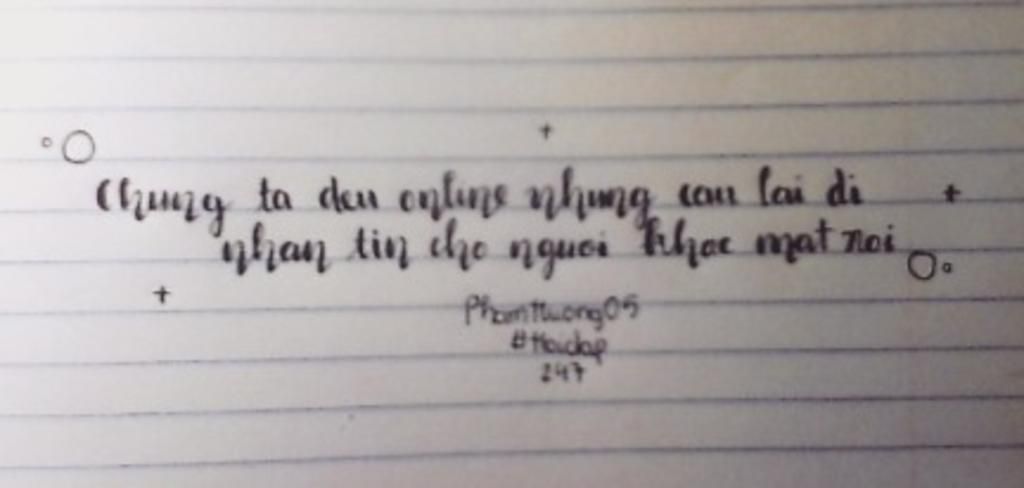 Chung ta deu online nhung cau lai di
nhan tin cho nguoi khac mat roi
PhamHuong05
#Hoidap
247